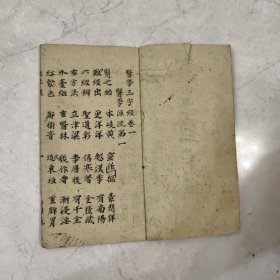 醫學三字經卷一
醫學源流第一
醫之始 本岐黃 靈樞作 素問詳
難經出 更洋洋 越漢季 有南陽
六經辨 聖道彰 傷寒著 金匱藏
垂方法 立津梁 李唐後 有千金
外臺繼 重醫林 後作者 漸浸淫
紅紫色 鄭衛音 迨東垣 重脾胃